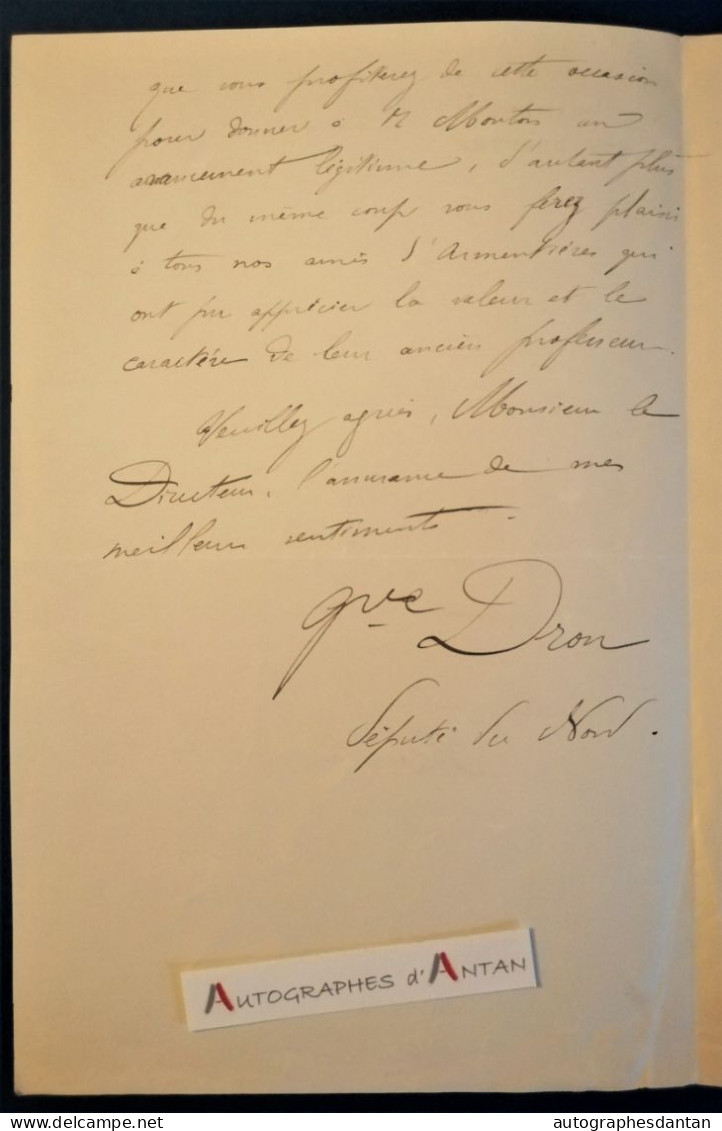 que vous profiterez de cette occasion
pour donner à M Mouton un
avancement légitime, d'autant plus
que du même coup vous ferez plaisir
à tous nos amis d'Armentières qui
ont pu apprécier la valeur et le
caractère de leur ancien professeur.
Veuillez agréer, Monsieur le
Directeur, l'assurance de mes
meilleurs sentiments.
Gve Dron
député du Nord.
AUTOGRAPHES d'ANTAN
delcampe.net
autographesdantan